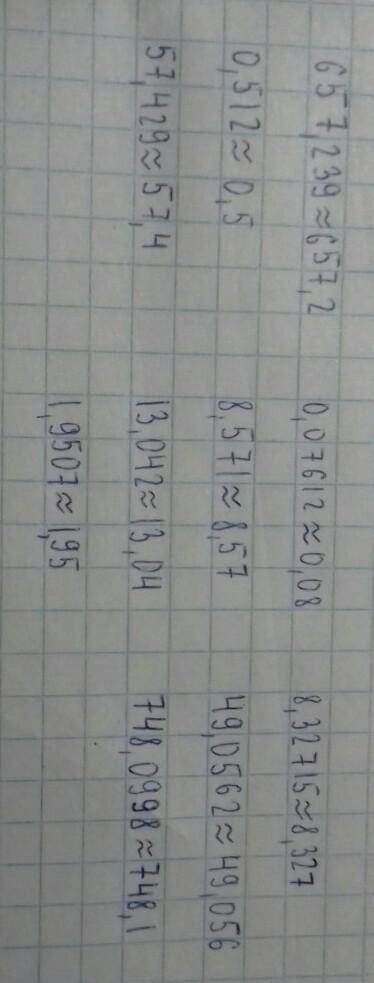 657,239≈657,2 0,07612≈0,08 8,32715≈8,327
0,512≈0,5 8,571≈8,57 49,0562≈49,056
57,429≈57,4 13,042≈13,04 748,0998≈748,1
1,9507≈1,95